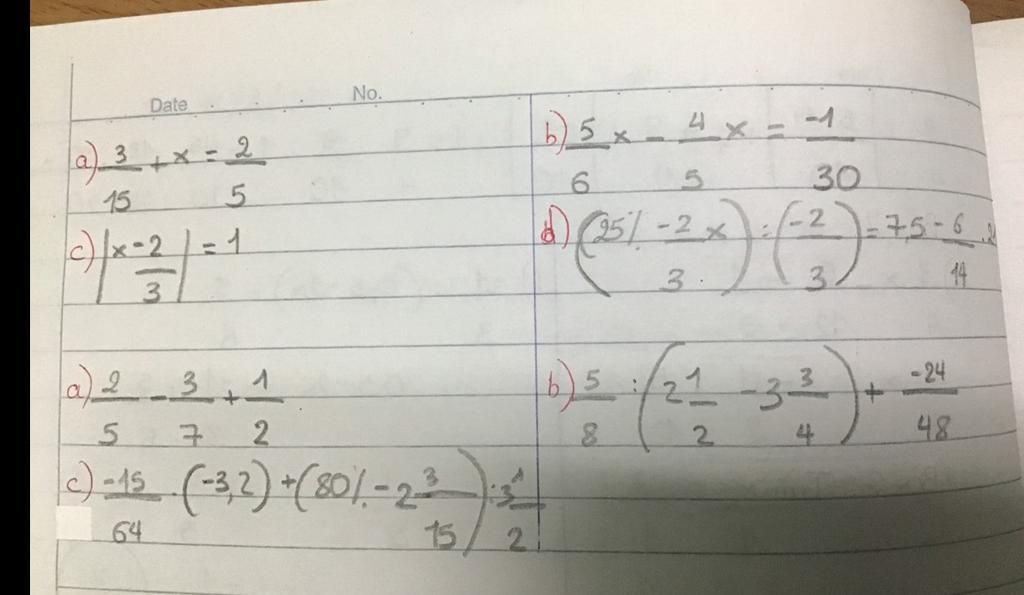 Date No.
a) 3/15 + x = 2/5
b) 5/6 x - 4/5 x = -1/30
c) |x - 2/3| = 1
d) (25% - 2/3 x) : (-2/3) = 7,5 - 6/14 .
a) 2/5 - 3/7 + 1/2
b) 5/8 : (2 1/2 - 3 3/4) + -24/48
c) -15/64 . (-3,2) + (80% - 2 3/15) : 3 1/2